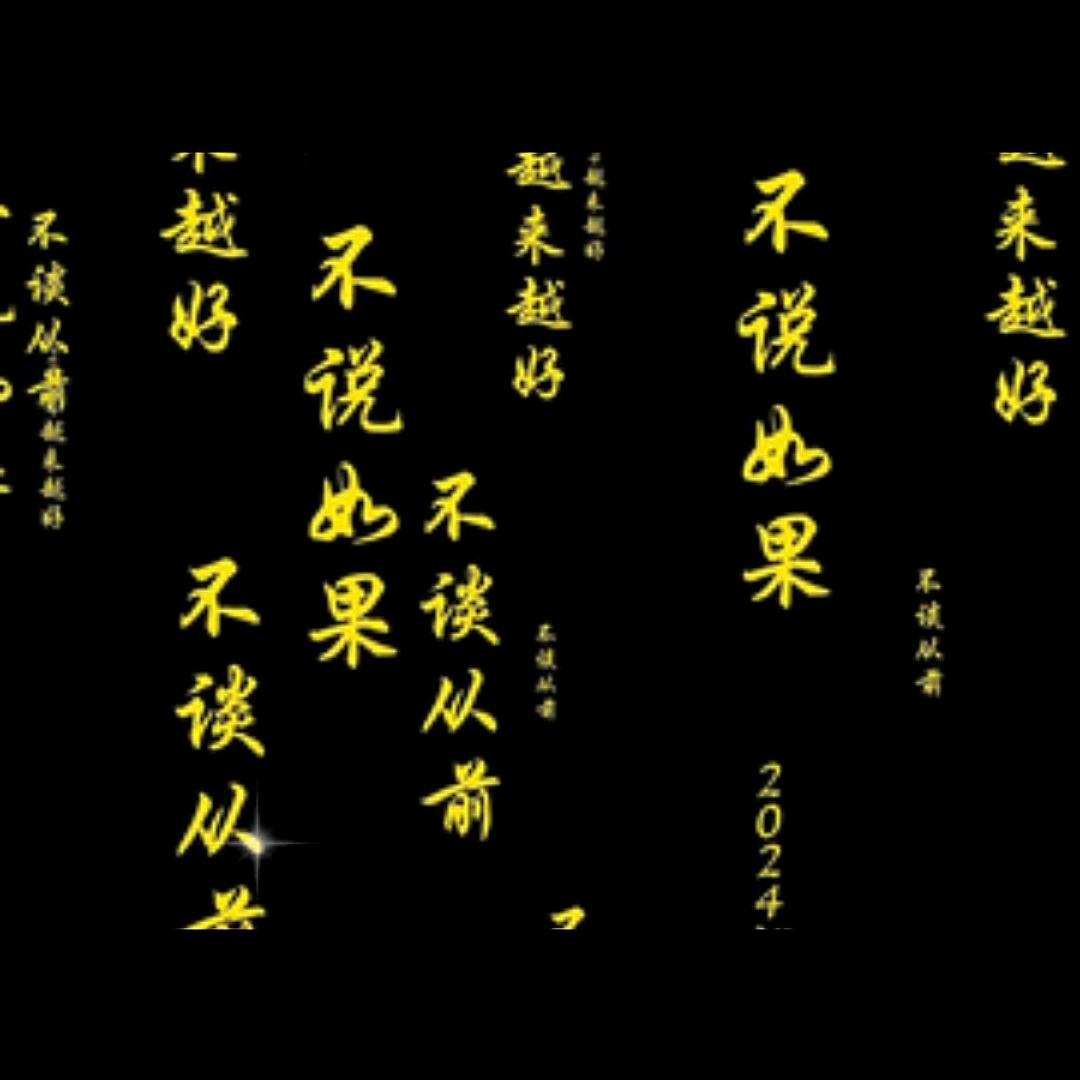 不谈从前
越来越好
越好
不谈从
不说如果
不谈从前
越来越好
越来越好
不谈从前
不说如果
2024
不谈从前
来越好